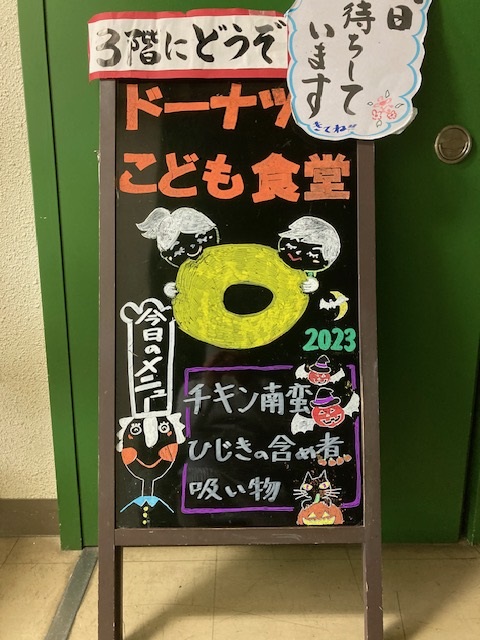 3階にどうぞ
日
待ちして
います
きてね
ドーナツ
こども食堂
今日のメニュー
2023
チキン南蛮
ひじきの含め煮
吸い物